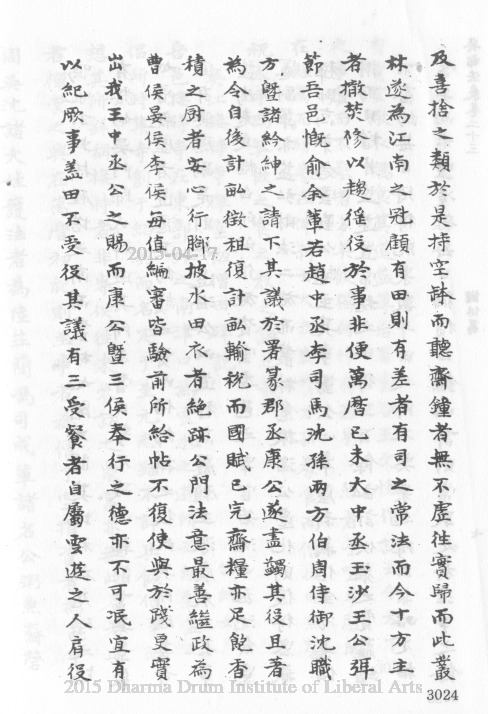 及喜捨之類於是持空缽而聽齋鐘者無不虛徃實歸而此叢
林遂為江南之冠顧有田則有差者有司之常法而今十方主
者撤焚修以趨徭役於事非便萬曆己未大中丞玉沙王公弭
節吾邑慨俞余輩若趙中丞李司馬沈孫兩方伯周侍御沈職
方暨諸紳之請下其議於署篆郡丞康公遂盡蠲其役且著
為令自後計畝徵租復計畝輸稅而國賦已完齋糧亦足飽香
積之厨者安心行腳披水田衣者絶跡公門法意最善繼政為
曹侯晏侯李侯每值編審皆驗前所給帖不復使與於踐更實
出我王中丞公之賜而康公暨三侯奉行之德亦不可泯宜有
以紀厥事盖田不受役其議有三受餐者自屬雲遊之人肩役
2015-04-17
2015 Dharma Drum Institute of Liberal Arts
3024